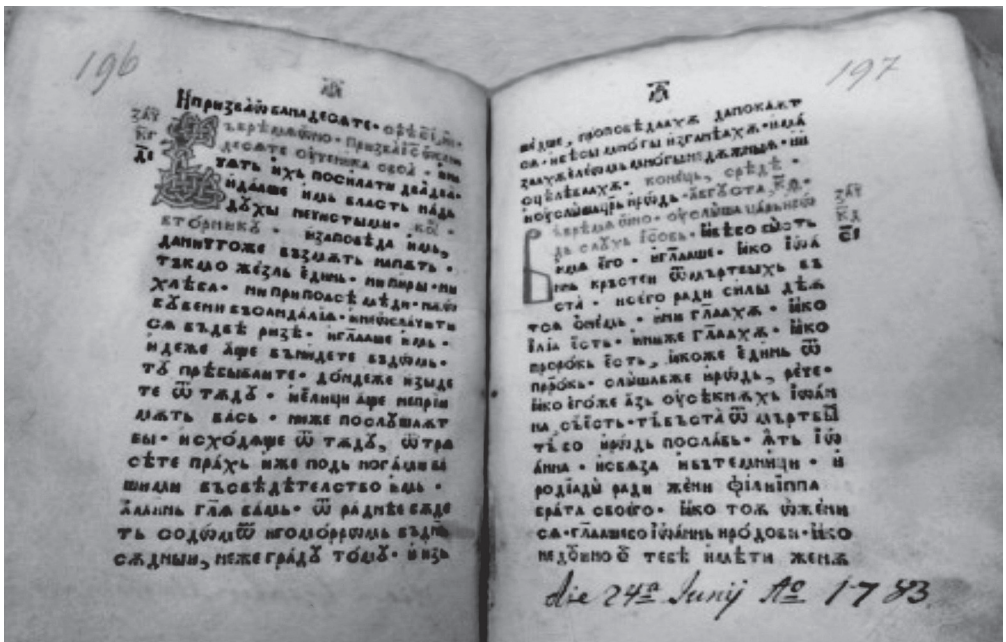 196
И призва обанадесѧте · срѣ҃
зач҃
въ врѣмѧ оно · призва і҃с
к҃г
десѧте оученика своѧ · и на
чѧтъ ихъ посилати два два ·
и даꙗше имь власть надь
дꙋхы нечистыми ·
вторникꙋ · и заповѣда имь,
да ничтоже възмѫть на пѫть ·
тъкмо жезль единь · ни пиры · ни
хлѣба · ни при поꙗсѣ мѣди ·
въ сандалїа · и не ѡблачити
сѧ въ двѣ ризѣ · и гл҃аше имь ·
идеже аще вънидете въ домь ·
тꙋ прѣбываите · дондеже изыде
те ѿ тѫдꙋ · и елици аще не прїи
мѫть вась · ниже послꙋшаѫт
вы · исходѧще ѿ тѫдꙋ, ѿтрѧ
сѣте прахь иже подь ногами ва
шими въ свѣдѣтелство имь ·
аминь гл҃ѧ вамь · ѿраднѣе бѫде
ть содомѿ и гоморрѡмь въ дн҃ь
сѫдныи, неже градꙋ томꙋ · и изь
197
шедше, проповѣдаахѫ да покаѫт
сѧ · и бѣсы многы изганѣахѫ · и ма
заахѫ елеѡмь многы недѫжныѧ · и
оцелѣваахѫ · конець, срѣдѣ ·
и оуслыша цр҃ь иродь · авгꙋста, к҃ѳ ·
зач҃
въ врѣмѧ ѡно · оуслыша царь иро
к҃д
дь слꙋхь і҃совь · ꙗвѣ бо бысть
имѧ его · и гл҃аше · ꙗко іѡа
нь крьстеи ѿ мъртвыхь въ
ста · и сего ради силы дѣѫ
тсѧ ѡ немь · ини гл҃аахѫ · ꙗко
илїа есть · ини же гл҃аахѫ · ꙗко
пророкь есть, ꙗкоже единь ѿ
пр҃рокь · слышавже иродь, рече ·
ꙗко егоже азь оусѣкнѫхь іѡан
на съ есть · тъ въста ѿ мъртвы
тъ бо иродь пославь · ѧть іѡ
анна · и свѧза и въ темници · и
родїады ради жени филиппа
брата своего · ꙗко тоѫ ѡжени
сѧ · гл҃аше бо іѡаннь иродови · ꙗко
не достоино тебѣ имѣти женѫ
die 24ª Junij Aº 1783